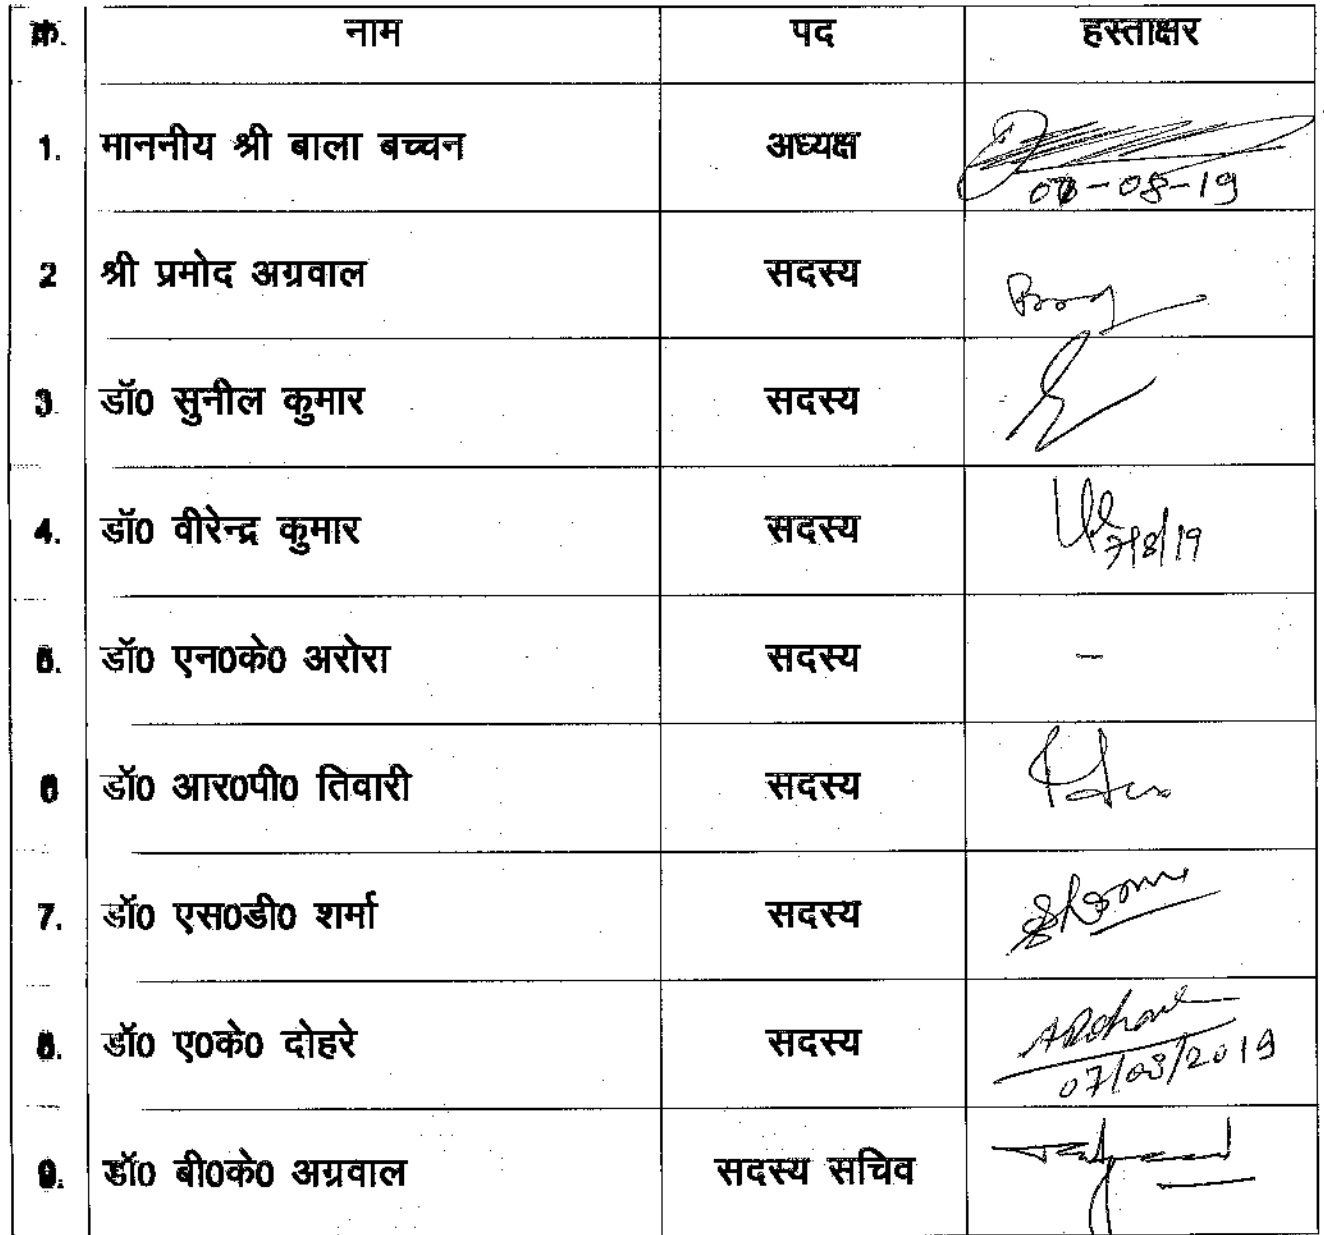 क्र. नाम पद हस्ताक्षर
1. माननीय श्री बाला बच्चन अध्यक्ष
07-08-19
2 श्री प्रमोद अग्रवाल सदस्य
3. डॉ0 सुनील कुमार सदस्य
4. डॉ0 वीरेन्द्र कुमार सदस्य
7/8/19
5. डॉ0 एन0के0 अरोरा सदस्य -
6 डॉ0 आर0पी0 तिवारी सदस्य
7. डॉ0 एस0डी0 शर्मा सदस्य
8. डॉ0 ए0के0 दोहरे सदस्य
07/08/2019
9. डॉ0 बी0के0 अग्रवाल सदस्य सचिव